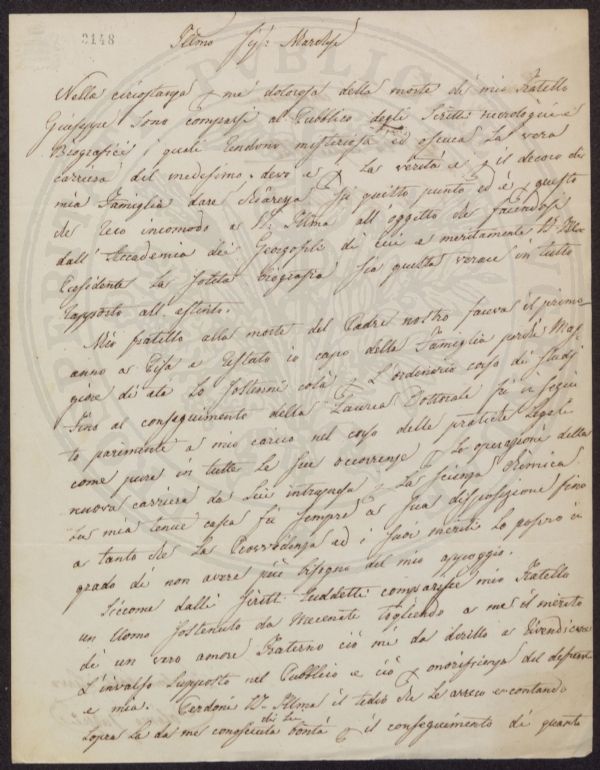 2148
Illmo Sig: Marchese
Nella circostanza p me dolorosa della morte di mio Fratello
Giuseppe sono comparsi al Pubblico degli Scritti necrologici e
Biografici i quali rendono misteriosa ed oscura la vera
carriera del medesimo. devo e p la verità e p il decoro di
mia Famiglia dare su questo punto ed è p questo
che reco incomodo a V. Illma all'oggetto che facendosi
dall'Accademia dei Georgofili di cui è meritamente V.
Presidente la solita Biografia sia questa verace in tutto
rapporto all'estinto.
Mio fratello alla morte del Padre nostro faceva il primo
anno a Pisa e restato io capo della Famiglia perchè Mag
giore di età lo sostenni colà p l'ordinario corso di studj
fino al conseguimento della Laurea Dottorale fu in segui
to parimente a mio carico nel corso delle pratiche legali
come pure in tutte le sue occorrenze p le operazioni della
nuova carriera da lui intrapresa p la scienza Chimica
La mia tenue cassa fu sempre a sua disposizione fino
a tanto che la Provvidenza ed i suoi meriti lo posero in
grado di non avere più bisogno del mio appoggio.
Siccome dalli Scritti suddetti comparisce mio Fratello
un Uomo sostenuto da Mecenate togliendo a me il merito
di un vero amore Fraterno ciò mi dà diritto a rivendicare
l'invalso supposto nel Pubblico e ciò p onorificenza del defunto
e mia. Perdoni V. Illma il tedio che le arreco e contando
sopra la da me conosciuta di Lei bontà p il conseguimento di quanto